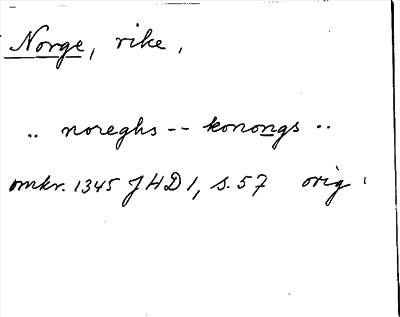 Norge, rike,
.. noreghs -- konongs ..
omkr. 1345 JHD 1, s. 57 orig.